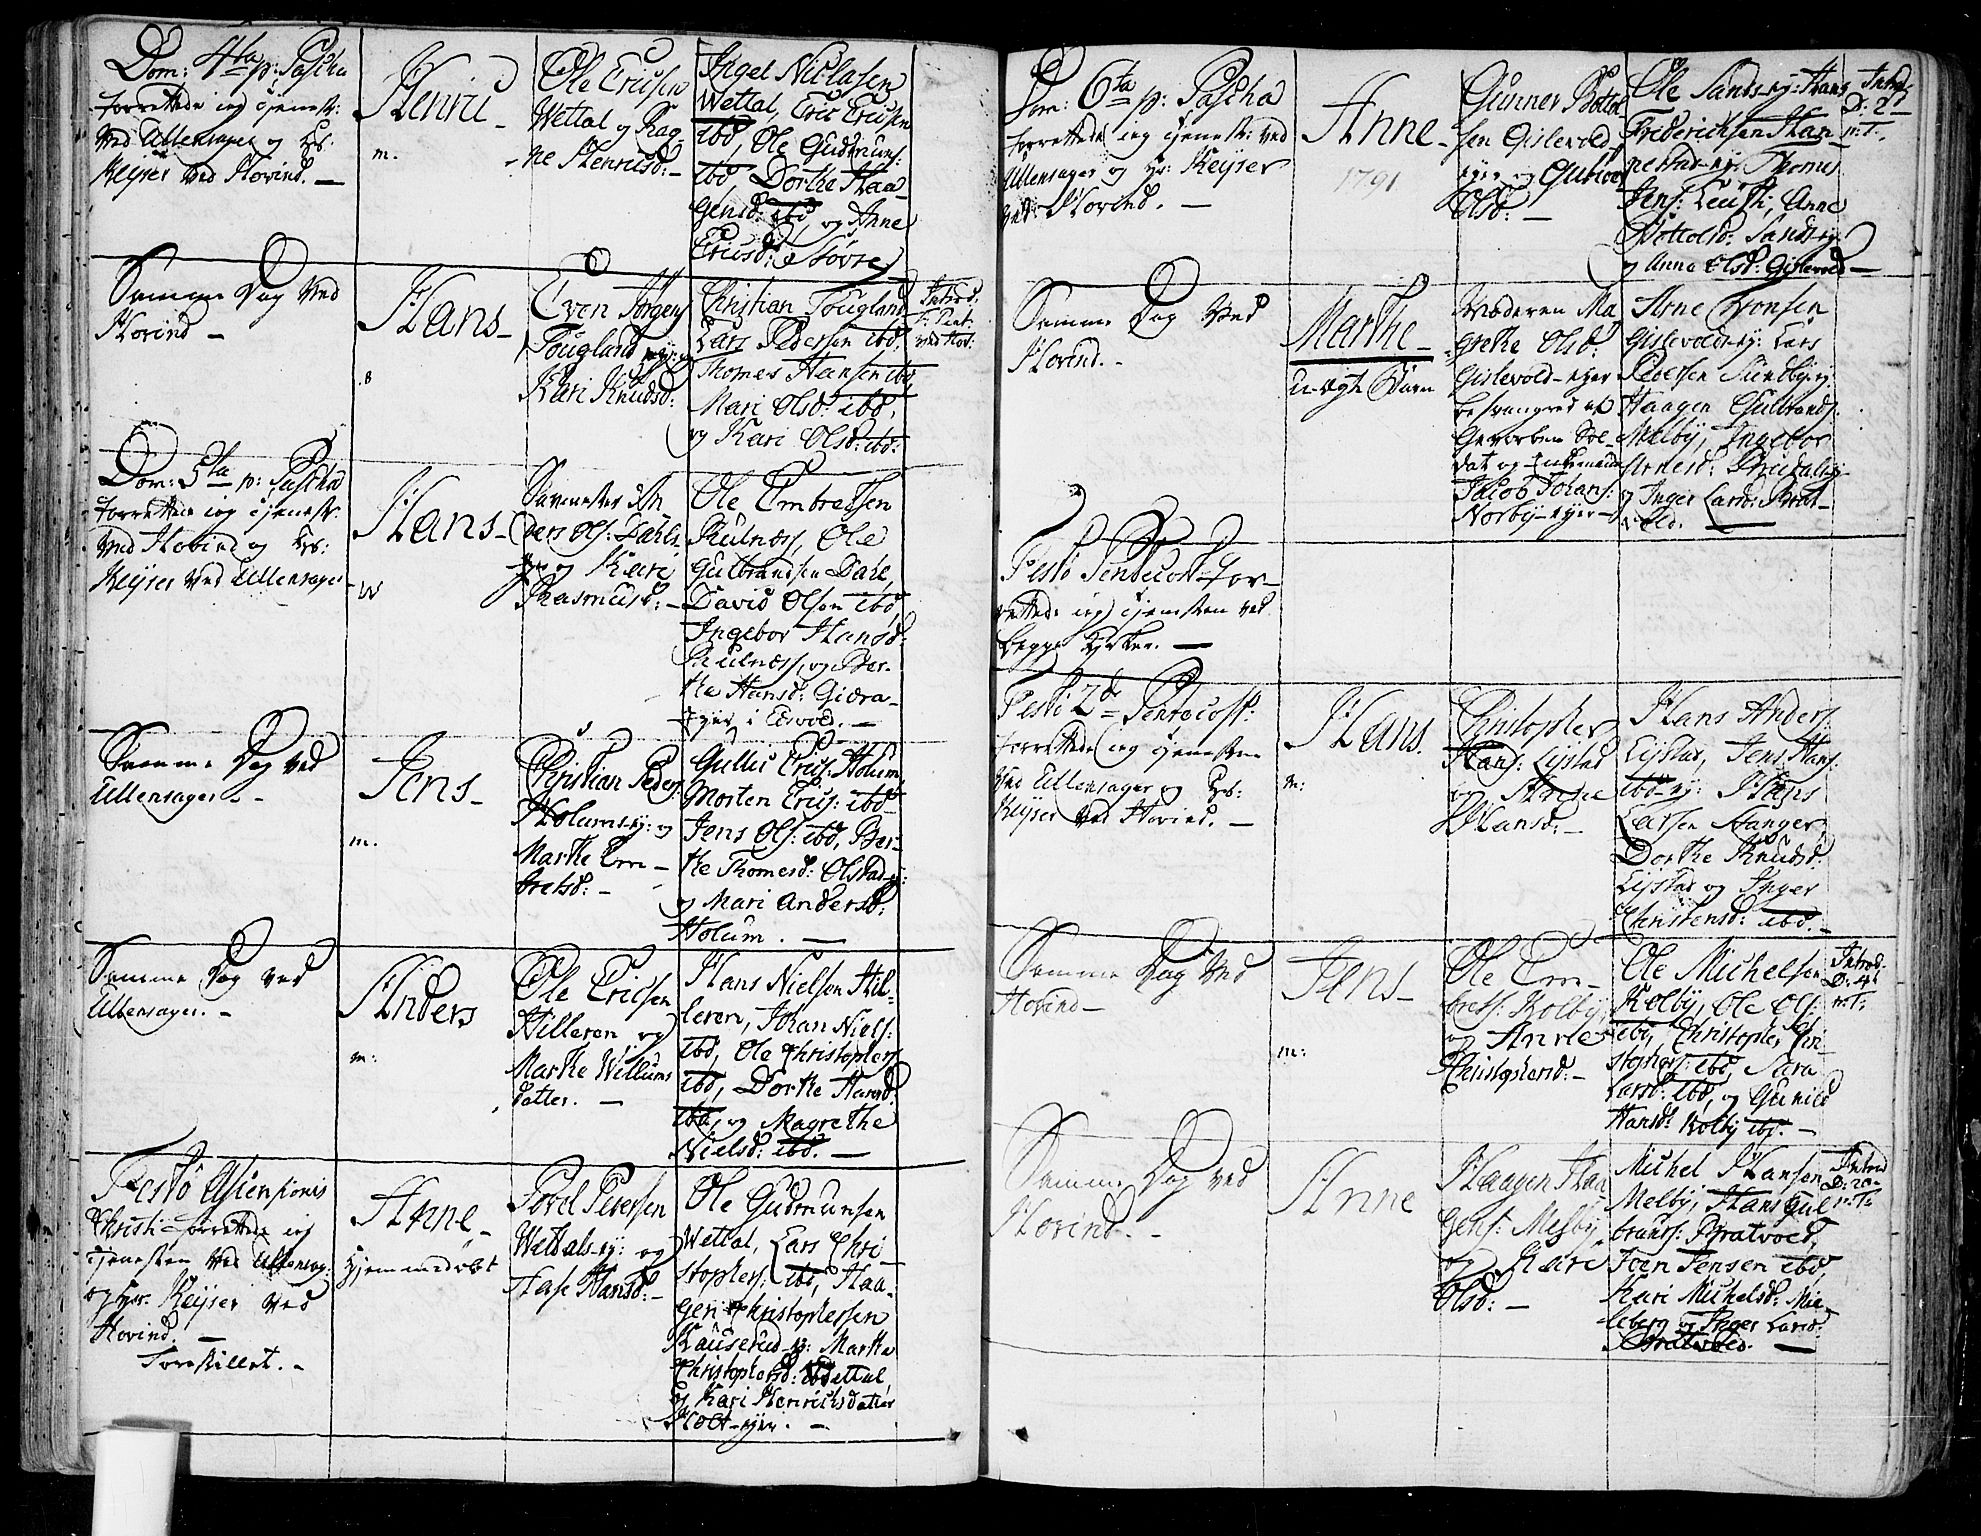 Dom: 4ta p: Pascha
forrettede ieg tjenest:
ved Ullensager og Hr:
Keyser ved Hovind. —
Henric
m.
Ole Ericsen
Wettal og Rag-
ne Henricsd: —
Ingel Niclasen
Wettal, Eric Ericsen
ibd, Ole Gudmuns:
ibd, Dorthe Haa
gensd: ibd, og Anne
Ericsd: Løvre
Samme Dag ved
Hovind —
Hans —
Even Jørgens
Fougland ey: og
Kari Knudsd:
Christian Fougland
Lars Pedersen ibd.
Thomes Hansen ibd,
Mari Olsd: ibd,
og Kari Olsd: ibd:
Introd:
ved Hov:
Dom: 5ta p: Pascha
forrettede ieg tjenest:
ved Hovind og Hr:
Keyser ved Ullensager —
Hans —
ders Ols: Dahls
eyer og Kari
Rasmusd: —
Ole Embretsen
Kulnæss, Ole
Gulbrandsen Dahl,
David Olsen ibd,
Ingebor Hansd:
Kulnæss, og Ber-
the Hansd: Gjøra-
eyer i Edsvold. —
Samme Dag ved
Ullensager —
Jens —
m.
Christian Peders:
Holums-ey: og
Marthe Em-
bretsd: —
Gullic Erics: Holum,
Morten Erics: ibd
Jens Ols: ibd, Ber-
the Thomesd: Olstad-ey:
og Mari Andersd:
Holum. —
Samme Dag ved
Ullensager. —
Anders
m:
Ole Ericsen
Hilleren og
Marthe Willums
datter. —
Hans Nielsen Hil-
leren, Johan Niels:
ibd, Ole Christophers:
ibd, Dorthe Hansd:
ibd, og Magrethe
Nielsd: ibd. —
Festo Ascensionis
Christi forrettede ieg
tjenesten ved Ullensag:
og Hr. Keyser ved
Hovind. —
Forestillet. —
Anne —
Hjemmedøbt
Povel Pedersen
Wettals-ey: og
Hansd: —
Ole Gudmunsen
Wettal, Lars Chri
stophers: ibd, Haa-
gen Christophersen
Kauserud-ey: Marthe
Christophersd: Wettal,
og Kari Henrichsdatter
Holt-eyer. —
Dom: 6ta p: Pascha
forrettede ieg tjenest: ved
Ullensager og Hr: Keyser
ved Hovind. —
Anne —
1791
Gunner Bottol
sen Gislevold-
eyer og
Olsd: —
Ole Sands-ey: Hans
Friderichsen Han-
nestad-ey: Thomes
Jens: Anne
Bottolsd: Sands-ey:
og Anna Olsd: Gislevold —
Introd:
D: 2d
p: T.
Samme Dag ved
Hovind. —
Marthe —
u-ægte Barn
Moderen Ma
grethe Olsd:
Gislevold-eyer
besvangred af
Gevorben Sol-
dat og Enkemand
Jacob Johans:
Norby-eyer —
Arne Tronsen
Gislevolds-ey: Lars
Pedersen Sundby-ey:
Haagen Gulbrands:
Melby, Ingebor
Arnesd:
og Inger Larsd: Brat-
vold. —
Festo Pentecost: for-
rettede ieg tjenesten ved
begge Kirker. —
Festo 2de Pentecost:
forrettede ieg tjenesten
ved Ullensager og Hr:
Keyser ved Hovind. —
Hans.
m:
Christopher
Hans: Lystad
og Marthe
Hansd: —
Hans Anders:
Lystad, Jens Hans:
ibd-ey: Hans
Larsen Hanger,
Dorthe Knudsd:
Lystad og Inger
Christensd: ibd. —
Samme Dag ved
Hovind —
Jens —
m:
Ole Em-
brets: Kolby,
og Anne
Christophersd: —
Ole Michelsen
Kolby, Ole Ols:
ibd, Christopher Chri-
stophers: ibd, Sara
Larsd: ibd, og Gunild
Hansd: Kolby ibd. —
Introd:
D: 4d
p: T:
Samme Dag ved
Hovind. —
Anne
Haagen Haa
gens: Melby
og Kari
Olsd: —
Michel Hansen
Melby, Hans Gul
brands: Bratvold,
Joen Jensen ibd,
Kari Michelsd: Mie-
leberg og Inger Larsd:
Bratvold. —
Introd
p: T: